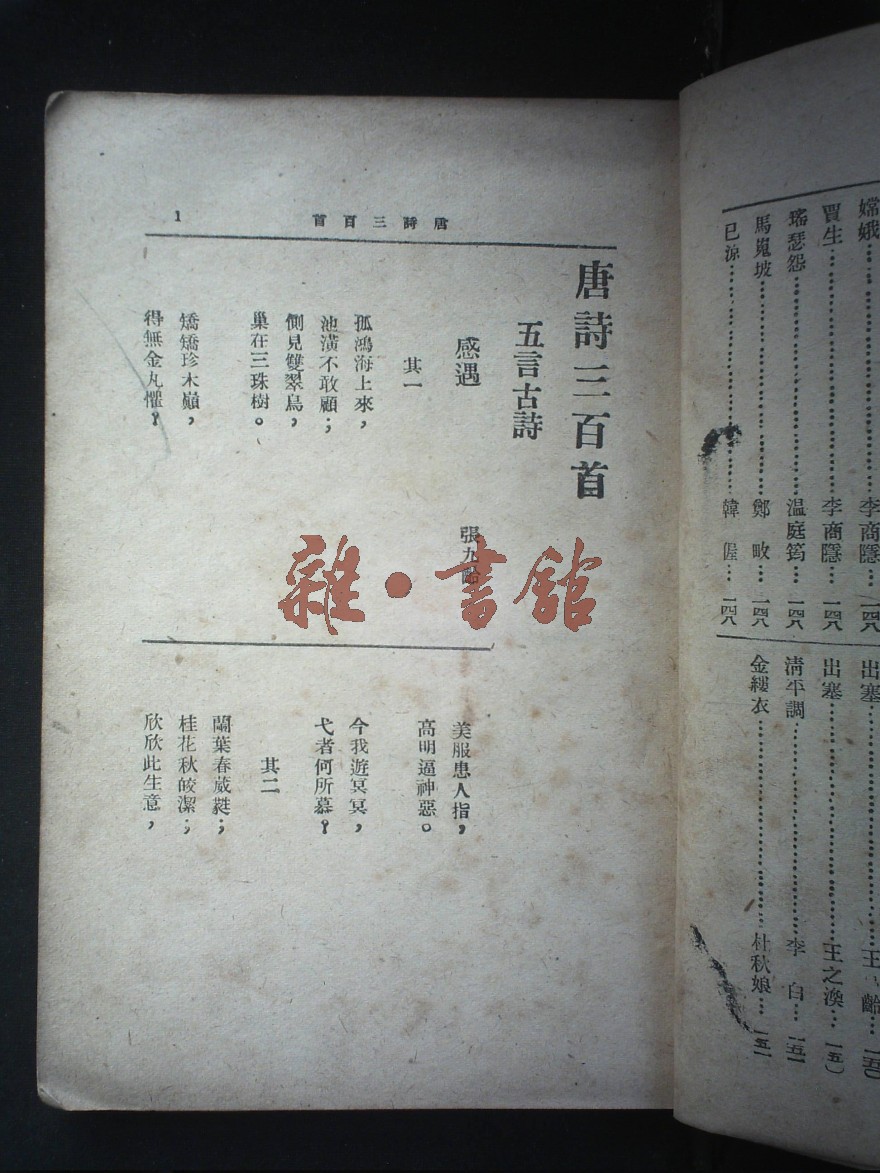 嫦娥……李商隱…一四八
賈生……李商隱…一四八
瑤瑟怨……温庭筠…一四八
馬嵬坡……鄭畋…一四八
已涼……韓偓…一四八
出塞……王 齡…一五〇
出塞……王之渙…一五〇
清平調……李白…一五一
金縷衣……杜秋娘…一五一
唐詩三百首
1
唐詩三百首
五言古詩
感遇 張九齡
其一
孤鴻海上來，
池潢不敢顧；
側見雙翠鳥，
巢在三珠樹。
矯矯珍木巔，
得無金丸懼？
美服患人指，
高明逼神惡。
今我遊冥冥，
弋者何所慕？
其二
蘭葉春葳蕤；
桂花秋皎潔；
欣欣此生意，
雜·書館